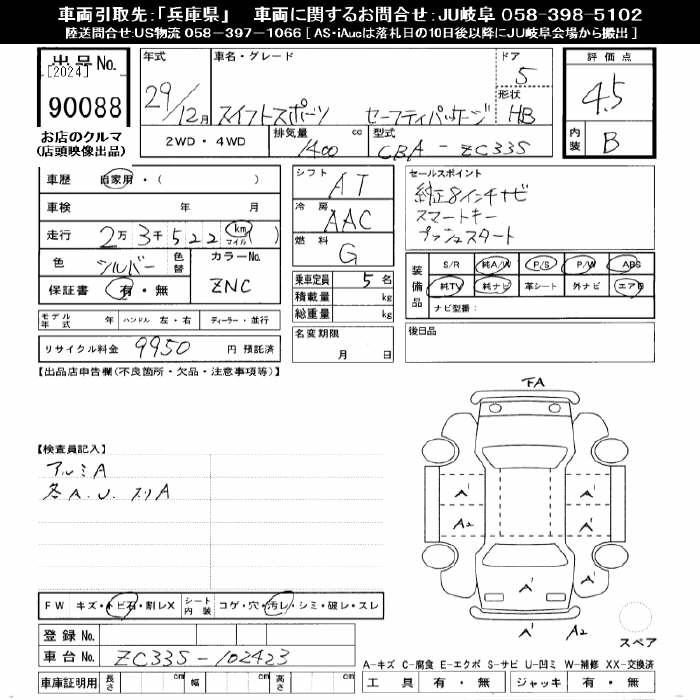 車両引取先:「兵庫県」 車両に関するお問合せ:JU岐阜 058-398-5102
陸送問合せ:US物流 058-397-1066 [ AS・iAucは落札日の10日後以降にJU岐阜会場から搬出 ]
出品No.
[2024]
90088
お店のクルマ
(店頭映像出品)
年式 車名・グレード ドア
29/12月 スイフトスポーツ セーフティパッケージ 5
形状
HB
2WD・4WD 排気量 1400 cc 型式 CBA-ZC33S
評価点
4.5
内装 B
車歴 自家用・( )
車検 年 月
走行 2万3千522 km マイル )
色 シルバー 色替 カラーNo. ZNC
保証書 有・無
モデル年式 年 ハンドル 左・右 ディーラー・並行
リサイクル料金 9950 円 預託済
シフト AT
冷房 AAC
燃料 G
乗車定員 5名
積載量 kg
総重量 kg
名変期限 月 日
セールスポイント
純正8インチナビ
スマートキー
プッシュスタート
装備品 S/R 純A/W P/S P/W ABS
純TV 純ナビ 革シート 外ナビ エアB
ナビ型番:
後日品
【出品店申告欄(不良箇所・欠品・注意事項等)】
【検査員記入】
アルミA
各A.U. スリA
FA
A'
A'
A2
A'
A'
A'
A2
スペア
FW キズ・トビ石・割レX シート内装 コゲ・穴・汚レ・シミ・破レ・スレ
登録No.
車台No. ZC33S-102423
車庫証明用 長さ cm 幅 cm 高さ cm
A-キズ C-腐食 E-エクボ S-サビ U-凹ミ W-補修 XX-交換済
工具 有・無 ジャッキ 有・無